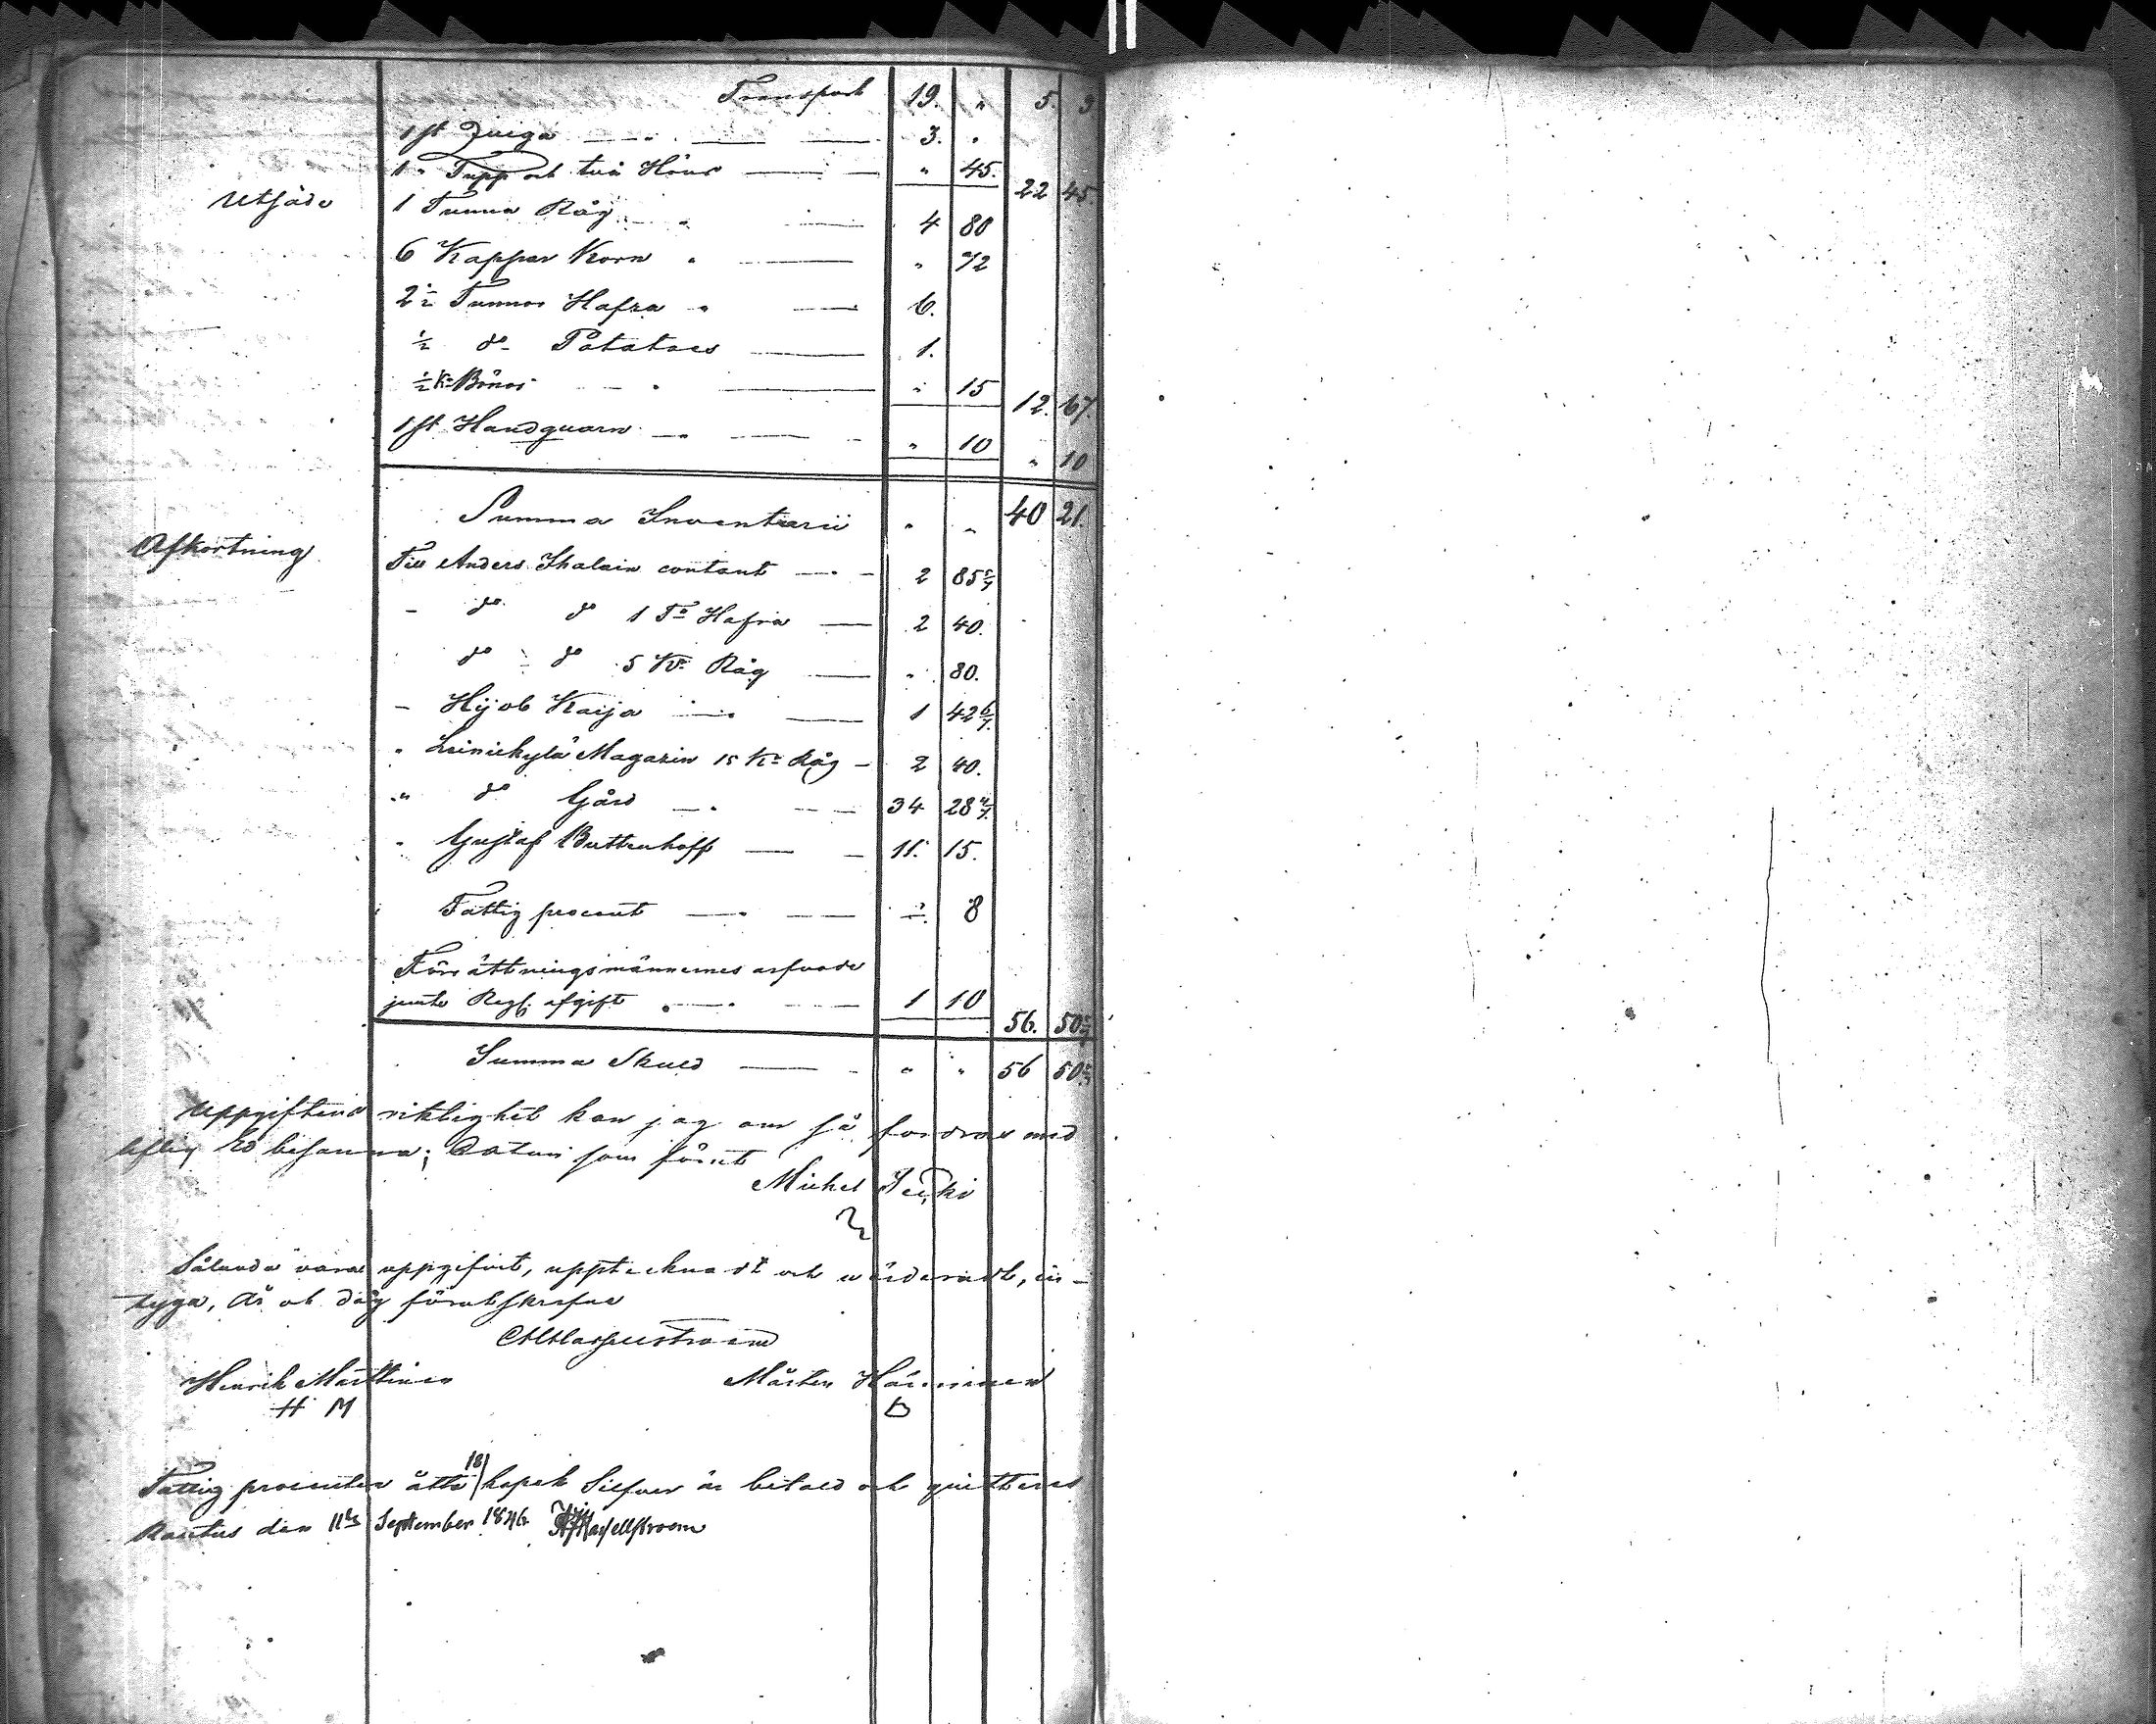 Transport 19. " 5.
1 st Quiga 3. "
1 " Tupp och två Höns " 45. 22 45.
Utsäde 1 Tunna Råg 4 80
6 Kappar Korn " 72
2 1/2 Tunnor Hafra 6.
1/2 do Potatoes 1.
1/2 Kr Bönor " 15 12. 67.
1 st Handquarn " 10 " 10
Summa Inventarii " " 40 21.
Afkortning Till Anders Ihalain contant 2 85 5/7
- do do 1 Ta Hafra 2 40.
do do 5 Kr Råg " 80.
- Hijob Kaija 1 42 6/7.
" Leinikylä Magazin 15 Kr Råg 2 40.
" do Gård 34 28 4/7.
" Gustaf Buttenhoff 11. 15.
Fattig procent 8
Förrättningsmännernes arfvode
jemte afgift 1 10 56. 50 5/7
Summa Skuld " " 56 50 5/7
Uppgiftens riktighet kan jag om så fordras med
liflig Ed besanna; Datum som förut
Michel
Sålunda vara uppgifvit, upptecknadt och värderadt, in-
tyga, År och dag förutskrefne
Henrik Marttinen Mårten Hänninen
H M
Fattig procenten åtta /8/ kopek Silfver är betald och quitteras
Rautus den 11te September 1846.